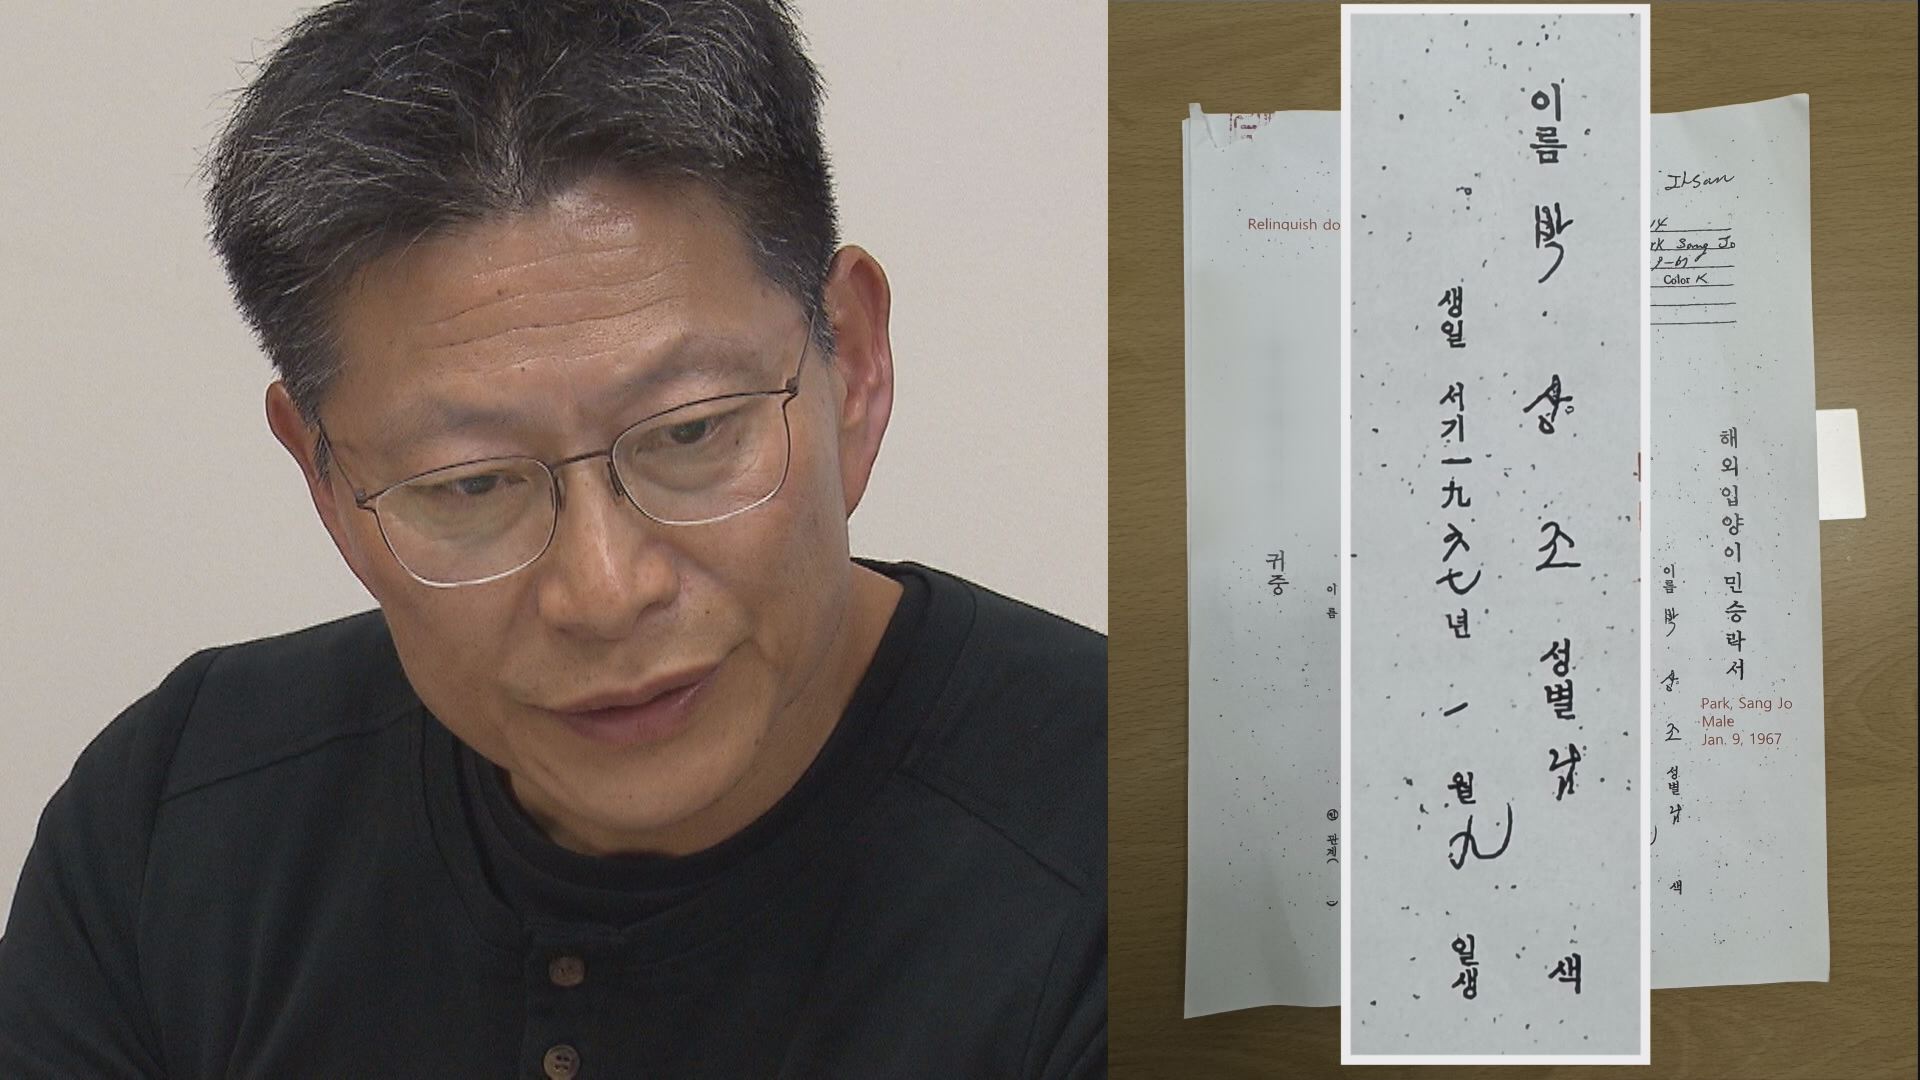 이름 박·상 조 성별 남 색
생일 서기一九六七년 一 월 九 일생
Relinquish do
귀중
이름
관계( )
Ihsan
14
rk Sang Jo
9-67
Color K
해외입양이민승락서
이름 박 상 조 성별 남 색
Park, Sang Jo
Male
Jan. 9, 1967